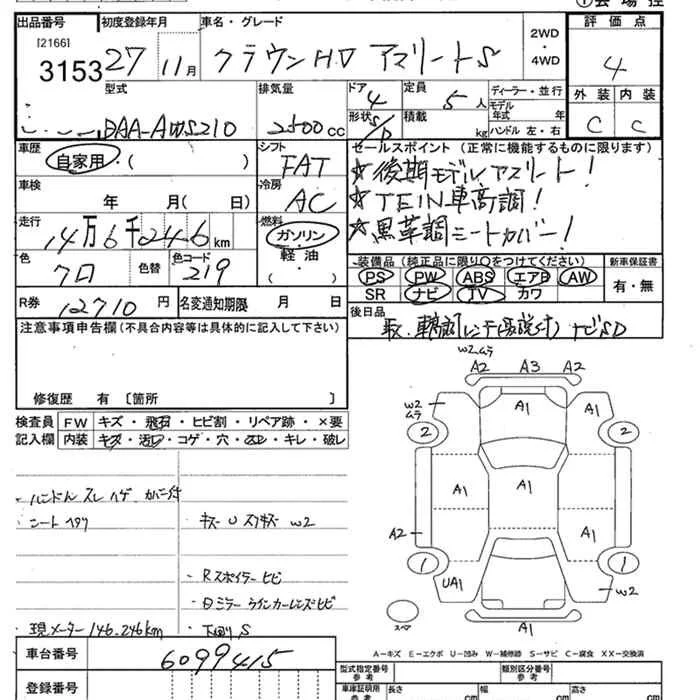 ①会場控
出品番号 初度登録年月 車名・グレード 評価点
[2166]
3153 27 11月 クラウンHV アスリートS
2WD
・
4WD
4
型式 排気量 ドア 4 定員 5人 ディーラー・並行
外装 内装
DAA-AWS210 2500cc
形状 積載 kg モデル年式 年
ハンドル 左・右
C C
車歴 自家用・( )
シフト FAT
セールスポイント (正常に機能するものに限ります)
☆後期モデルアスリート!
☆TEIN車高調!
☆黒革調シートカバー!
車検 年 月( 日)
冷房 AC
走行 14万6千246km
燃料 ガソリン・軽油・( )
色 クロ 色替 色コード 219
装備品 (純正品に限り○をつけてください) 新車保証書
PS PW ABS エアB AW
SR ナビ TV カワ
有・無
R券 12710円 名変通知期限 月 日
後日品
注意事項申告欄(不具合内容等は具体的に記入して下さい)
修復歴 有 [箇所 ]
検査員記入欄
FW キズ・飛石・ヒビ割・リペア跡・×要
内装 キズ・汚レ・コゲ・穴・スレ・キレ・破レ
W2 ムラ
A2 A3 A2
W2 ムラ
A1 A1
2 2
A1 A1 A1
A2
1 1
UA1
W2
A1
スペア
・ハンドル スレ ハゲ カバー付
・シート ヘタリ
・キズ U スリキズ W2
・Rスポイラー ヒビ
・右ミラー ウインカーレンズヒビ
・現メーター 146.246km
・下回り S
A-キズ E-エクボ U-凹み W-補修跡 S-サビ C-腐食 XX-交換済
車台番号 6099415
登録番号
型式指定番号 参考
類別区分番号 参考
車庫証明用 参考 長さ cm 幅 cm 高さ cm